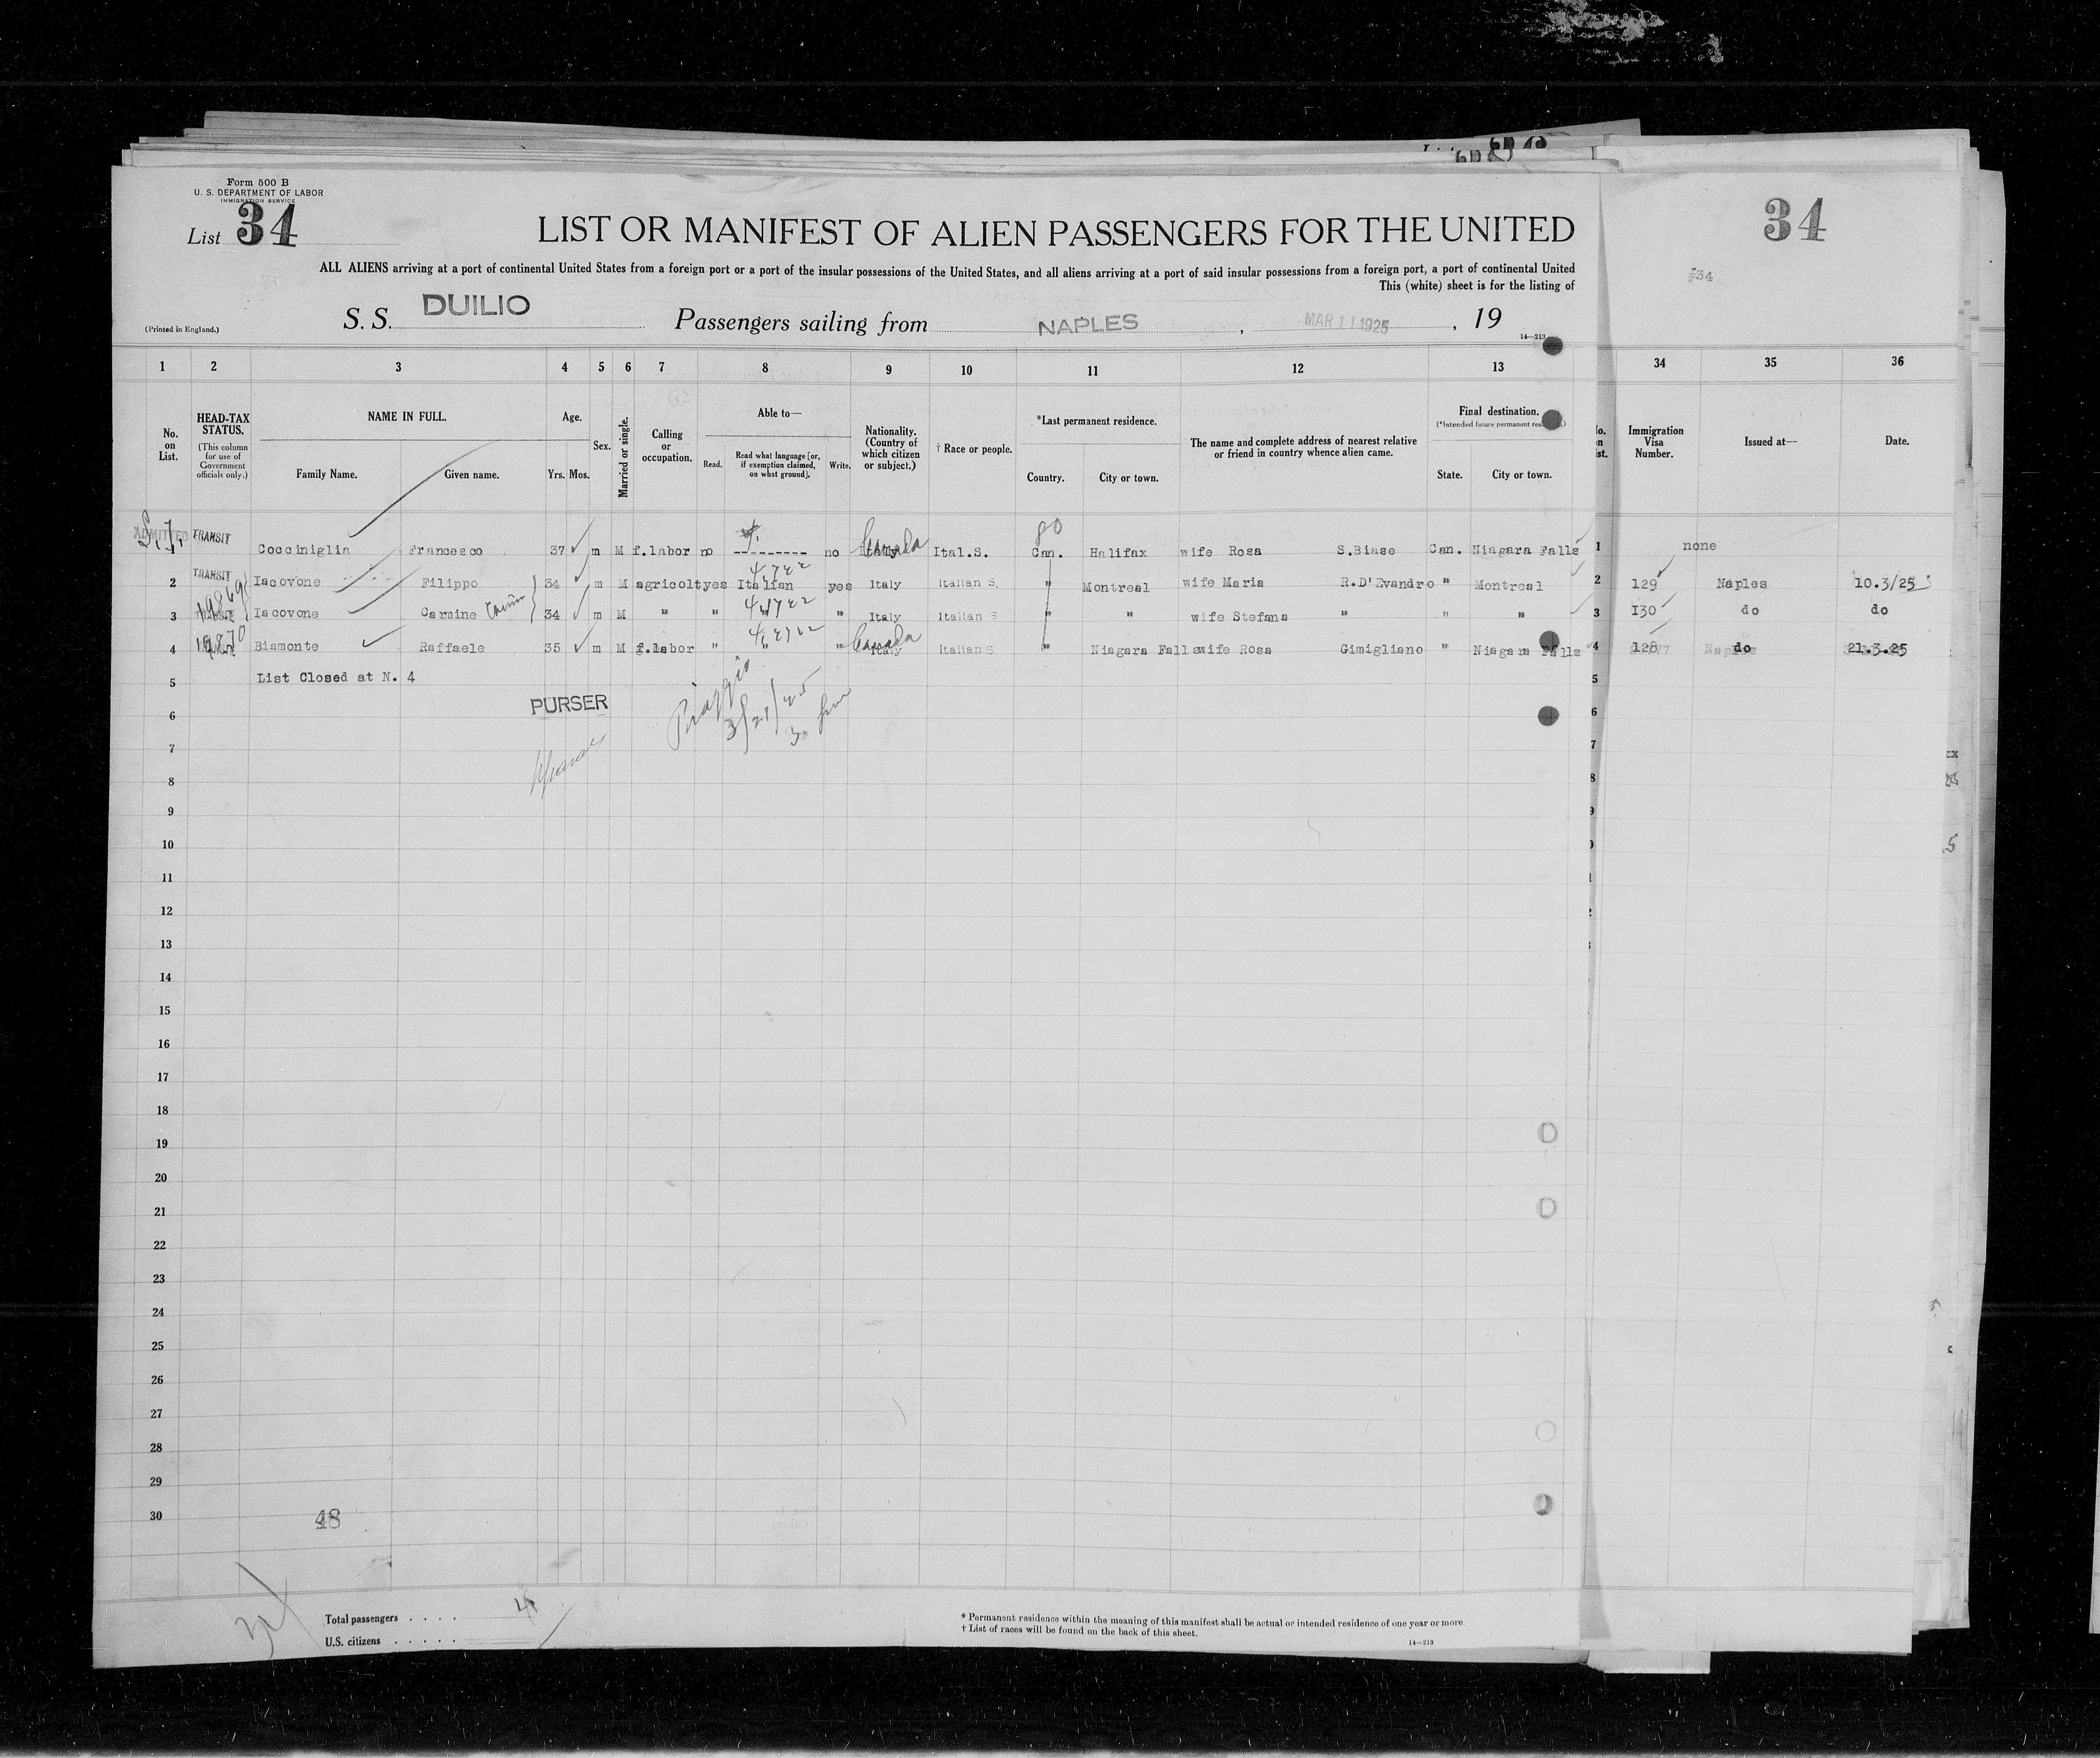 Form 500 B
U. S. DEPARTMENT OF LABOR
IMMIGRATION SERVICE
List 34
34
#34
LIST OR MANIFEST OF ALIEN PASSENGERS FOR THE UNITED
ALL ALIENS arriving at a port of continental United States from a foreign port or a port of the insular possessions of the United States, and all aliens arriving at a port of said insular possessions from a foreign port, a port of continental United
This (white) sheet is for the listing of
(Printed in England.)
S. S. DUILIO Passengers sailing from NAPLES, MAR 11 1925, 19
14—213
1 2 3 4 5 6 7 8 9 10 11 12 13 34 35 36
No. on List.
HEAD-TAX STATUS.
(This column for use of Government officials only.)
NAME IN FULL.
Family Name. Given name.
Age.
Yrs. Mos.
Sex.
Married or single.
Calling or occupation.
Able to—
Read. Read what language [or, if exemption claimed, on what ground]. Write.
Nationality. (Country of which citizen or subject.)
† Race or people.
*Last permanent residence.
Country. City or town.
The name and complete address of nearest relative or friend in country whence alien came.
Final destination.
(*Intended future permanent
State. City or town.
Immigration Visa Number.
Issued at—
Date.
ADMITTED TRANSIT Cocciniglia Francesco 37 m M f.labor no --------- no Italy Canada Ital.S. 80 Can. Halifax wife Rosa S.Biase Can. Niagara Falls 1 none
2 TRANSIT Iacovone Filippo 34 m M agricolt yes Italian yes Italy Italian S. " Montreal wife Maria R.D'Evandro " Montreal 2 129 Naples 10.3/25
3 19869 Iacovone Carmine 34 m M " " " " Italy Italian S " " wife Stefana " " " 3 130 do do
4 19870 Biamonte Raffaele 35 m M f.labor " " " Italy Canada Italian S " Niagara Falls wife Rosa Gimigliano " Niagara Falls 4 128 do 21.3.25
5 List Closed at N. 4 5
6 PURSER 6
3/21/25
7 7
8 8
9 9
10
11
12
13
14
15
16
17
18
19
20
21
22
23
24
25
26
27
28
29
30
48
Total passengers . . . . 4
U.S. citizens . . . . .
* Permanent residence within the meaning of this manifest shall be actual or intended residence of one year or more.
† List of races will be found on the back of this sheet.
14—213